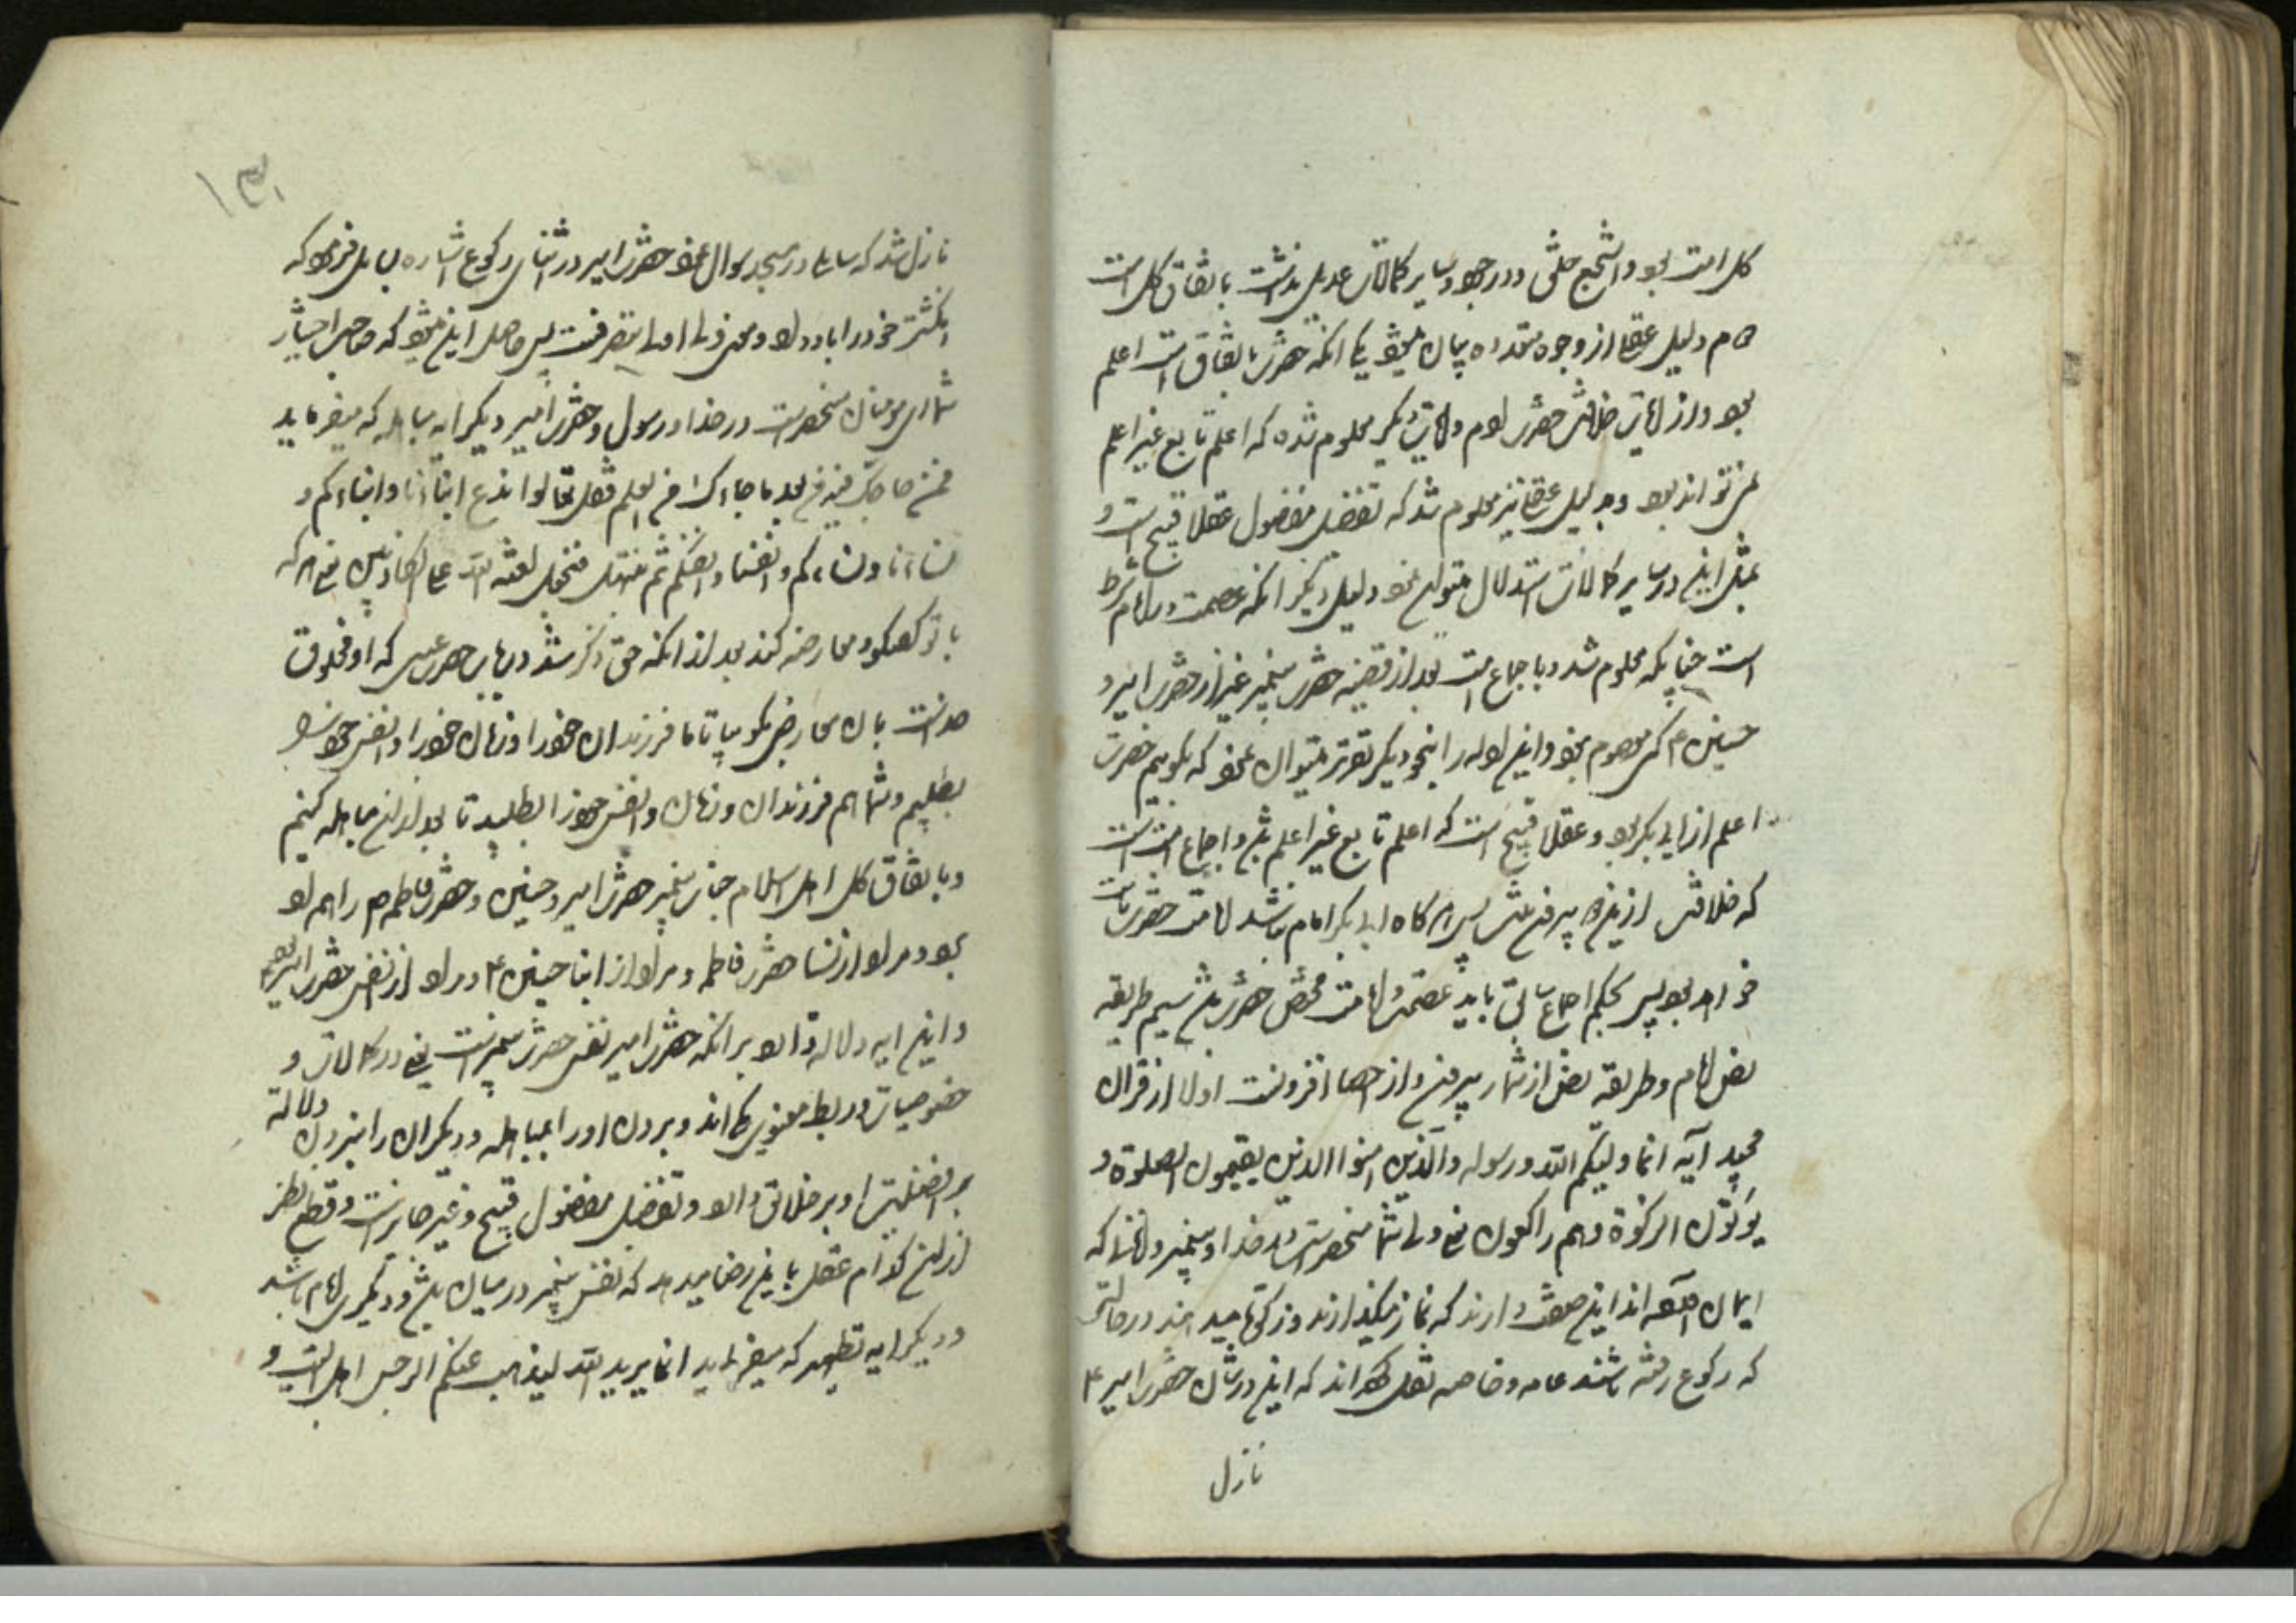 کل امت بود و اشجع خلق و در جود و سایر کمالات عدیل نداشت باتفاق کل امت
دلیل عقلی از وجوه متعدده بیان میشود یکی آنکه حضرت باتفاق امت اعلم
بود و از آیات خلافت حضرت آدم و آیات دیگر معلوم شده که اعلم تابع غیر اعلم
نمی تواند بود و بدلیل عقلی نیز معلوم شد که تفضیل مفضول عقلا قبیح است و
بمثل این در سایر کمالات استدلال میتوان نمود دلیل دیگر آنکه عصمت در امام شرط
است چنانکه معلوم شد و باجماع امت بعد از قضیه حضرت پیغمبر غیر از حضرت امیر و
حسنین ع کسی معصوم نبود و این ادله را بنحو دیگر تقریر میتوان نمود که بگوییم حضرت
اعلم از ابی بکر بود و عقلا قبیح است که اعلم تابع غیر اعلم باشد و اجماع امت است
که خلافت ازینها بیرون نیست پس هرگاه ابی بکر امام نباشد امامت حضرت ثابت
خواهد بود پس بحکم اجماع سابق باید عصمت و امامت مختص حضرت باشد سیم طریقه
نص امام و طریقه نص از شمار بیرون و از احصا افزونست اولا از قرآن
مجید آیه انما ولیکم الله و رسوله و الذین امنوا الذین یقیمون الصلوة و
یؤتون الزکوة وهم راکعون یعنی ولی شما منحصر است در خدا و پیغمبر و آنانکه
ایمان آورده اند این صفت دارند که نماز میگذارند و زکوة میدهند در حالتی
که رکوع رفته باشند عامه و خاصه نقل کرده اند که این در شان حضرت امیر ع
نازل
۱۳۱
نازل شد که سایلی در مسجد سوال نمود حضرت امیر در اثنای رکوع اشاره بسایل فرمود که
انگشتر خود را باو داد و معنی ولی اولی بتصرفست پس حاصل این میشود که صاحب اختیار
شما ای مومنان منحصر است در خدا و رسول و حضرت امیر دیگر ایه مباهله که میفرماید
فمن حاجک فیه من بعد ما جاءک من العلم فقل تعالوا ندع ابناءنا و ابناءکم و
نساءنا و نساءکم و انفسنا و انفسکم ثم نبتهل فنجعل لعنه الله علی الکاذبین یعنی هر که
با تو گفتگو و معارضه کند بعد از آنکه حق ذکر شد در باب حضرت عیسی که او مخلوق
خداست بآن معارض بگو بیا تا ما فرزندان خود را و زنان خود را و انفس خود را
بطلبیم و شما هم فرزندان و زنان و انفس خود را بطلبید تا بعد از این مباهله کنیم
و باتفاق کل اهل اسلام جناب پیغمبر حضرت امیر و حسنین و حضرت فاطمه را همراه
برد و مراد از نسا حضرت فاطمه و مراد از ابنا حسنین ع و مراد از نفس حضرت امیر بود
و این ایه دلاله دارد بر آنکه حضرت امیر نفس حضرت پیغمبر است یعنی در کمالات و
خصوصیات و ربط معنوی یکی اند و بردن او را بمباهله و دیگران را نبردن دلالة
بر افضلیت او بر خلایق دارد و تفضیل مفضول قبیح و غیر جایز است و قطع نظر
از این کدام عقل باین رضا میدهد که نفس پیغمبر در میان باشد و دیگری امام باشد
و دیگر ایه تطهیر که میفرماید انما یرید الله لیذهب عنکم الرجس اهل البیت و